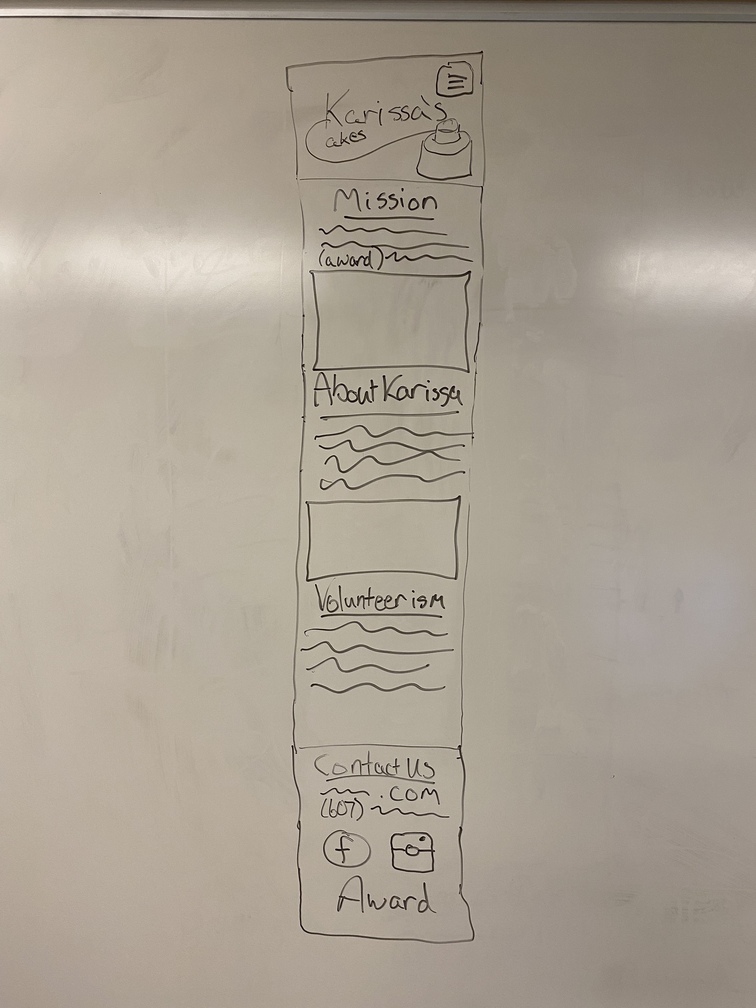 Karissa's
akes
Mission
(award)
About Karissa
Volunteerism
Contact Us
.COM
(607)
f
Award